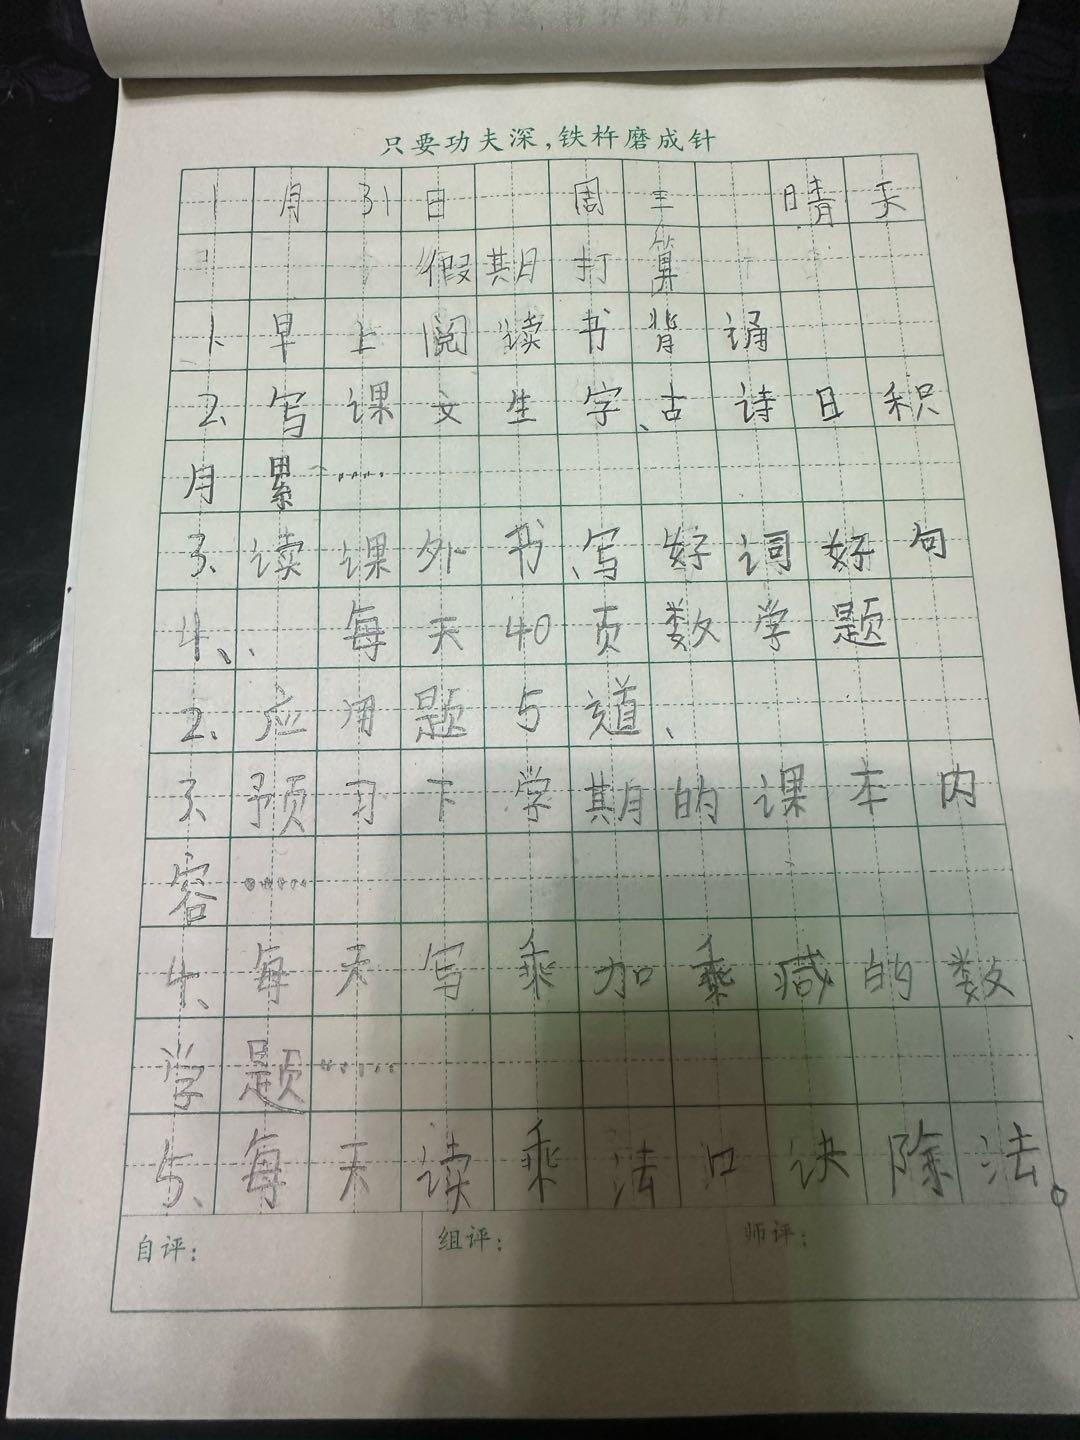 只要功夫深,铁杵磨成针
1月31日 周三 晴天
假期打算
1、早上阅读书背诵
2、写课文生字、古诗日积
月累……
3、读课外书、写好词好句
4、、每天40页数学题
2、应用题5道、
3、预习下学期的课本内
容……
4、每天写乘加乘减的数
学题……
5、每天读乘法口诀除法。
自评: 组评: 师评: